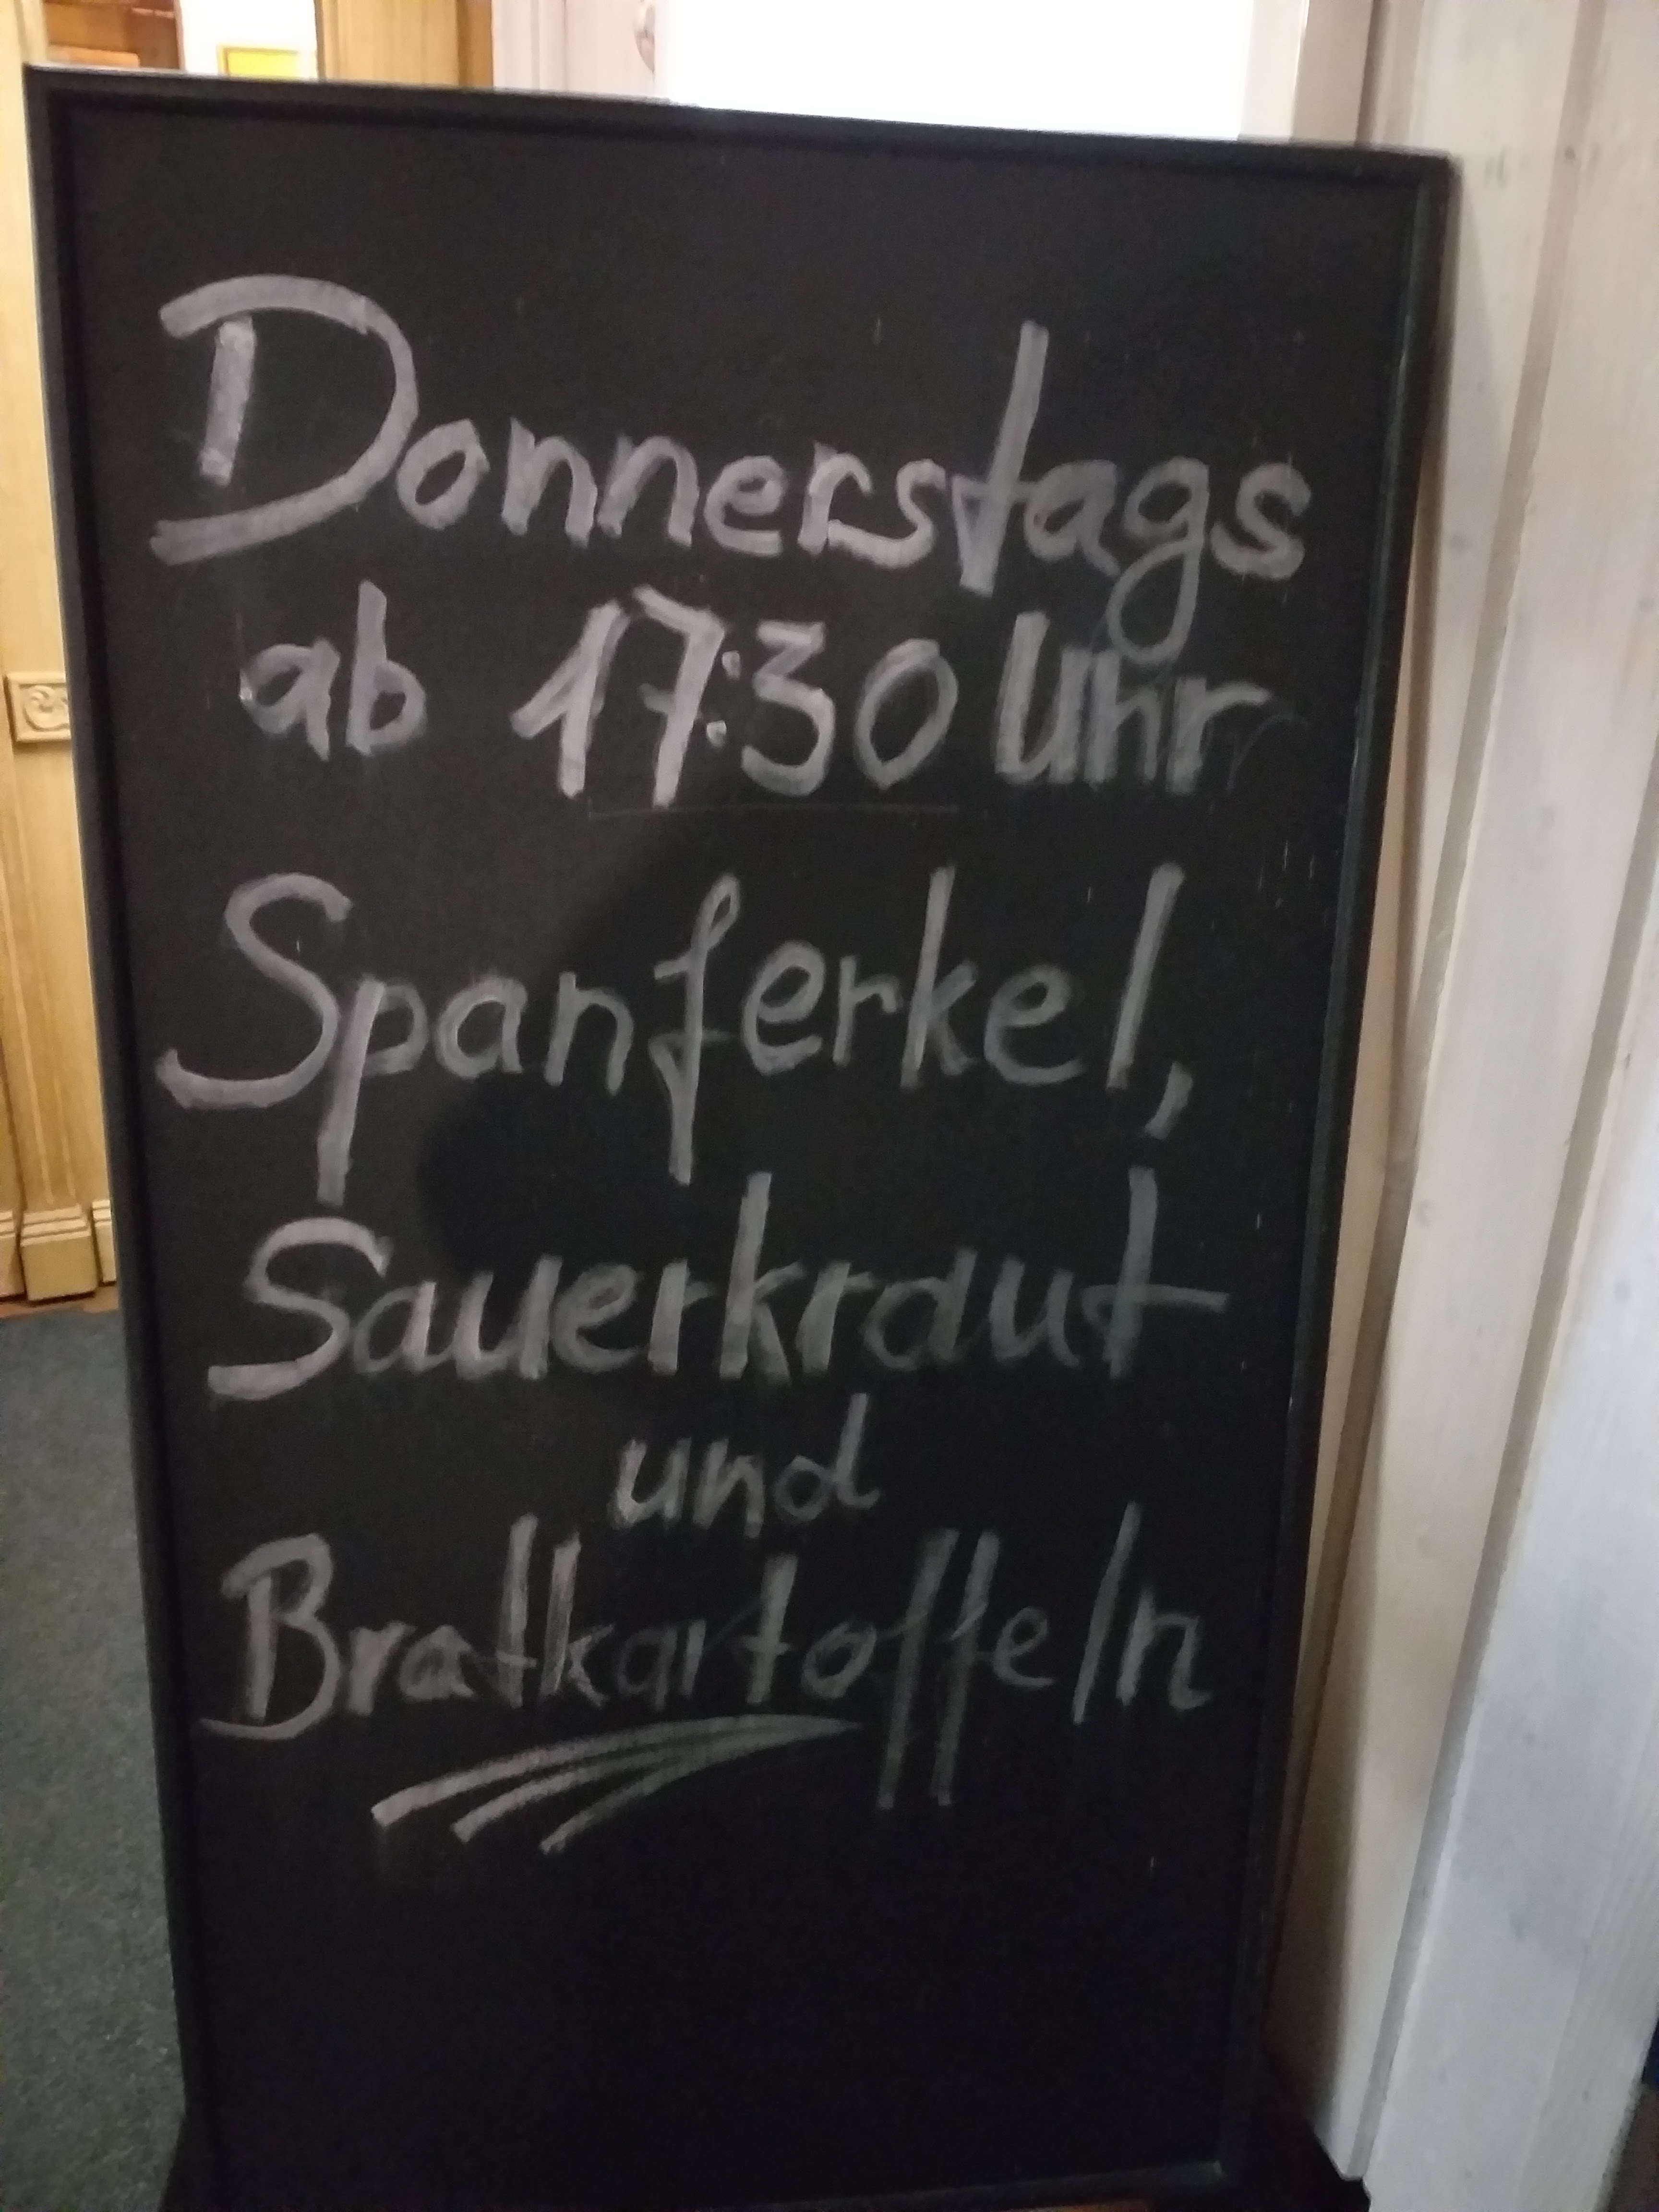 Donnerstags
ab 17:30 Uhr
Spanferkel,
Sauerkraut
und
Bratkartoffeln